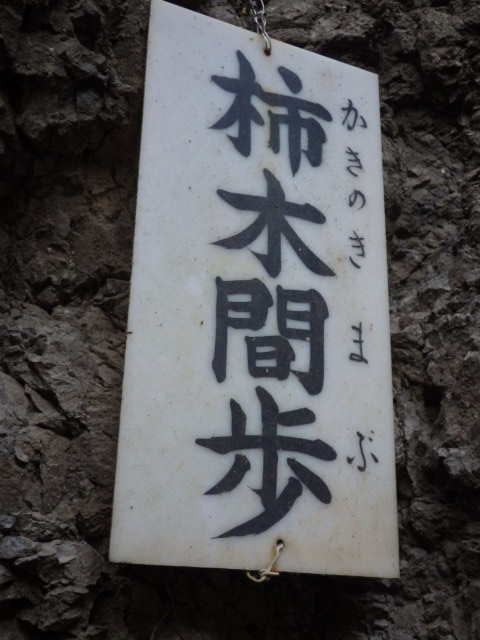 かきのきまぶ
柿木間歩